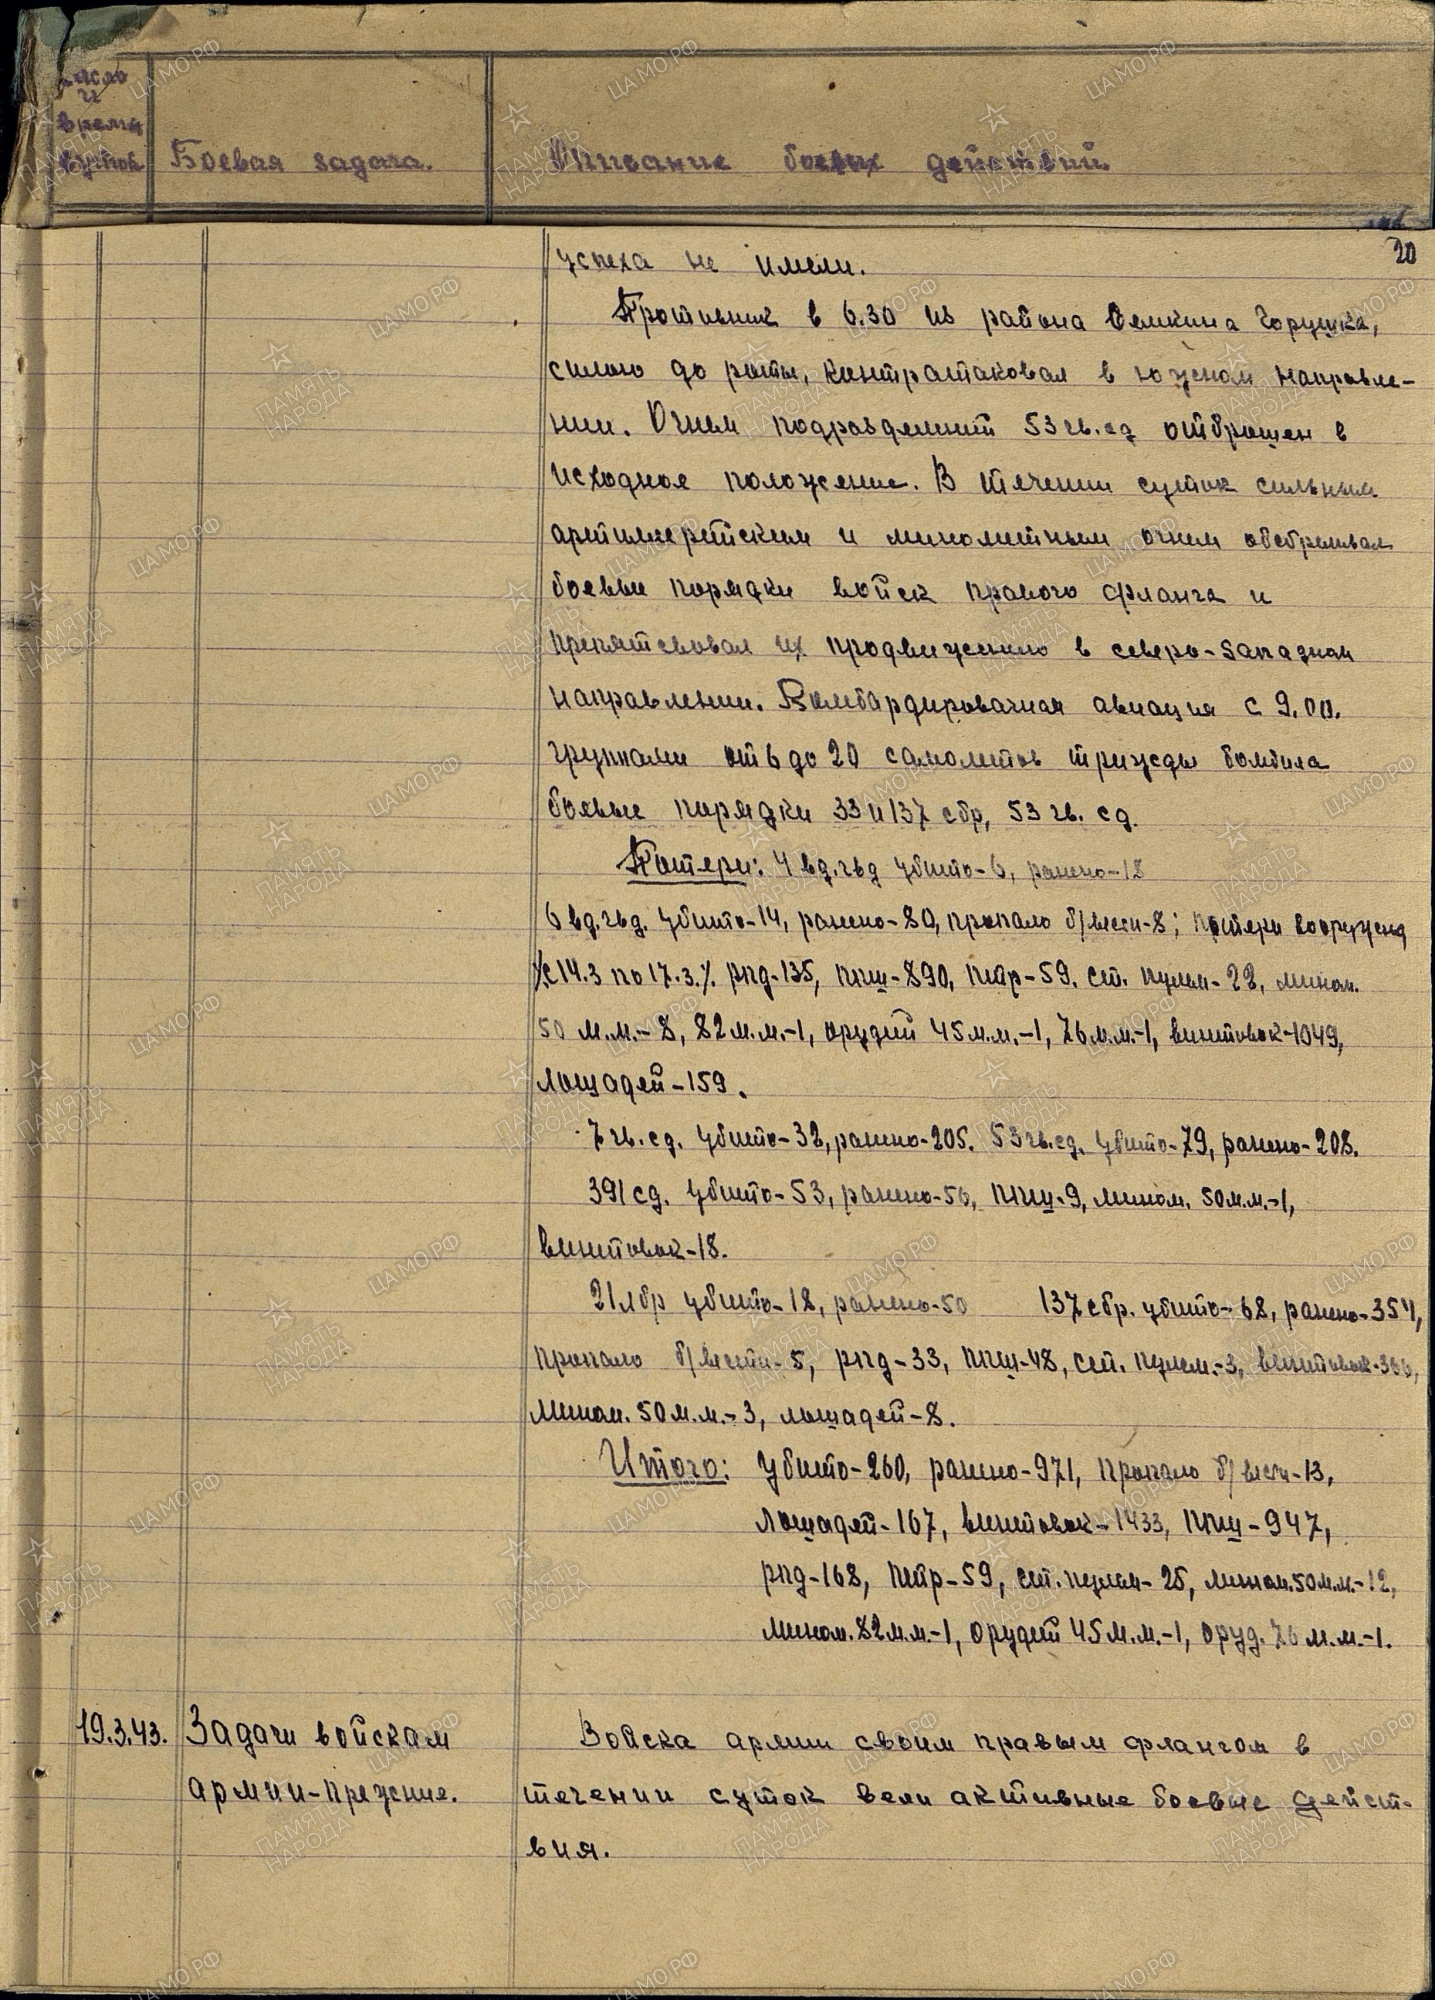 число
и
время
суток
Боевая задача.
Описание боевых действий.
20
успеха не имели.
Противник в 6.30 из района Сямкина Горушка,
силою до роты, контратаковал в южном направле-
нии. Огнем подразделений 53 гв.сд отброшен в
исходное положение. В течении суток сильным
артиллерийским и минометным огнем обстреливал
боевые порядки войск правого фланга и
препятсвовал их продвижению в северо-западном
направлении. Бомбардировачная авиация с 9.00.
группами от 6 до 20 самолетов трижды бомбила
боевые порядки 33 и 137 сбр, 53 гв. сд.
Потери: 4 вд.гвд убито-6, ранено-18
6 вд.гвд. убито-14, ранено-80, пропало б/вести-8; потери вооружен
/с 14.3 по 17.3./. рпд-135, ппш-890, птр-59. ст. пулем-22, мином.
50 м.м.-8, 82 м.м.-1, орудий 45 м.м.-1, 76 м.м.-1, винтовок-1049,
лошадей-159.
7 гв.сд. убито-32, ранено-205. 53 гв.сд. убито-79, ранено-208.
391 сд. убито-53, ранено-50, ппш-9, мином. 50 м.м.-1,
винтовок-18.
21 лбр убито-18, ранено-50 137 сбр. убито-68, ранено-354,
пропало б/вести-5, рпд-33, ппш-48, ст. пулем.-3, винтовок-366,
мином. 50 м.м.-3, лошадей-8.
Итого: убито-260, ранено-971, пропало б/вести-13,
лошадей-167, винтовок-1433, ппш-947,
рпд-168, птр-59, ст. пулем-25, мином. 50 м.м.-12,
мином. 82 м.м.-1, орудий 45 м.м.-1, оруд. 76 м.м.-1.
19.3.43. Задачи войскам Войска армии своим правым флангом в
армии-прежние. течении суток вели активные боевые дейст-
вия.